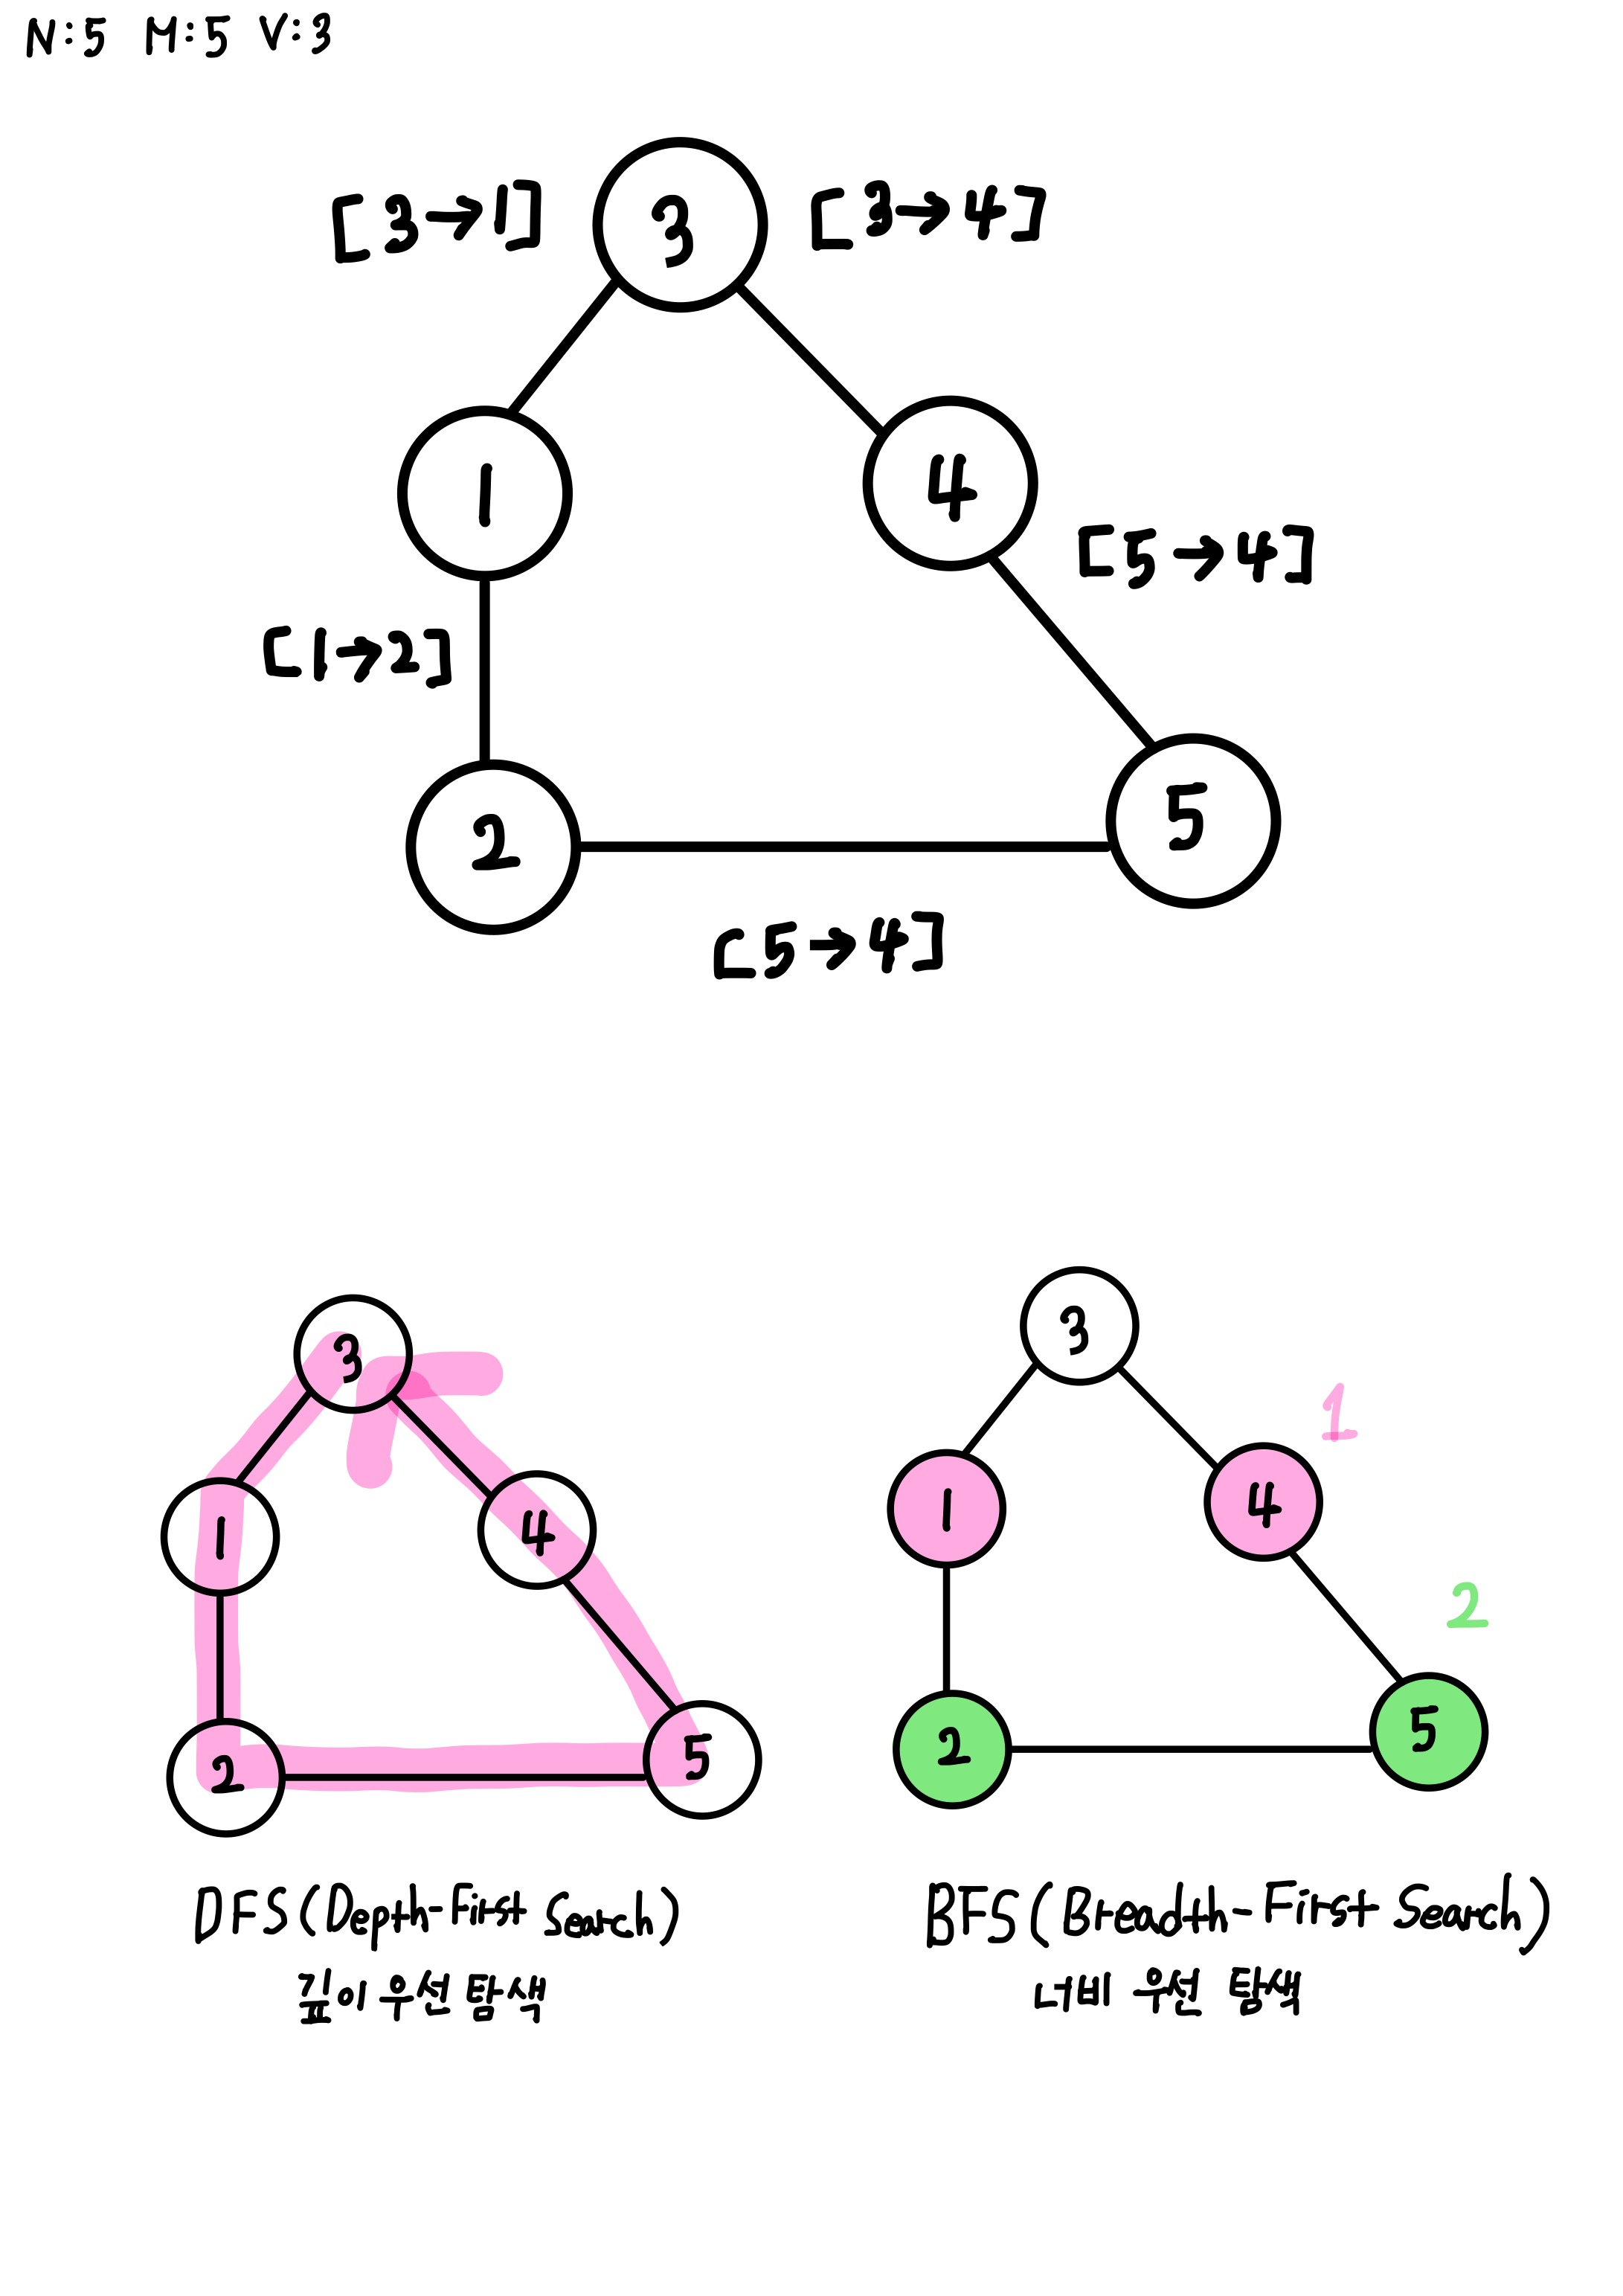 N:5 M:5 V:3
[3→1] 3 [3→4]
1 4
[5→4]
[1→2]
2 5
[5→4]
3
1 4
2 5
3
1
1 4
2
2 5
DFS(Depth-First Search)
깊이 우선 탐색
BFS(Breadth-First Search)
너비 우선 탐색